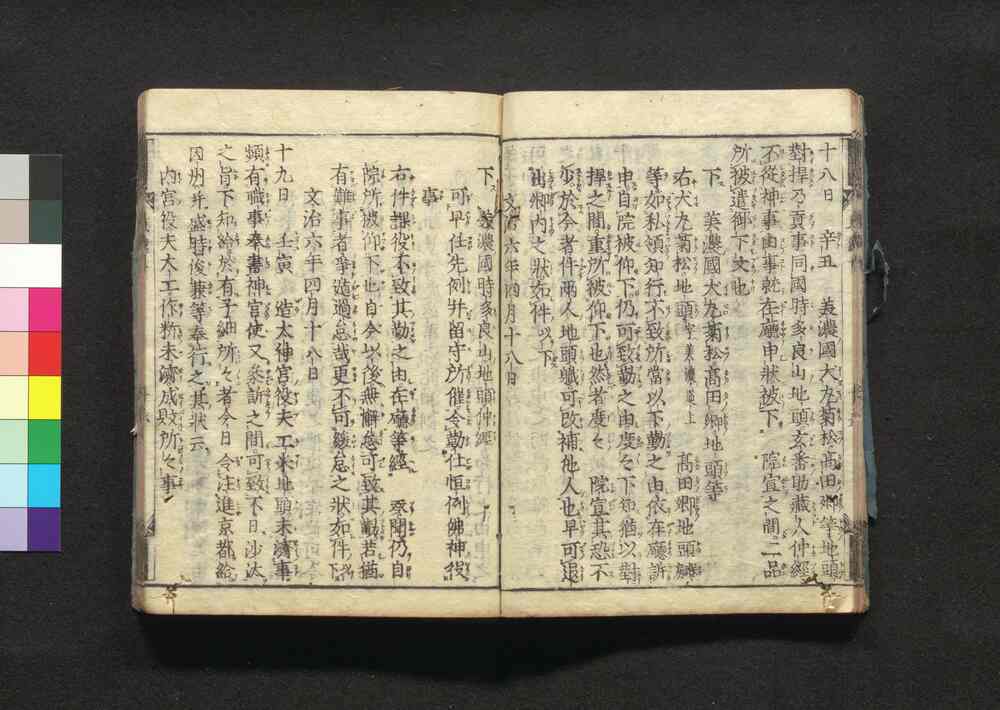 十八日 辛丑 美濃國犬丸菊松髙田郷等地頭
對捍乃貢事同國時多良山地頭玄蕃助蔵人仲經
不從神事由事就在廳申狀被下 院宣之間二品
所被遣御下文也
下 美濃國犬丸菊松髙田郷地頭等
右犬丸菊松地頭字美濃尾上 髙田郷地頭
等如私領知行不致所當以下勤之由依在廳訴
申自院被仰下仍可致勤之由度々下知猶以對
捍之間重所被仰下也然者度々 院宣其恐不
少於今者件兩人地頭軄可改補他人也早可退
出郷内之狀如件以下
文治六年四月十八日
下 美濃國時多良山地頭仲經
可早任先例并留守所催令勤仕恒例佛神役
事
右件課役不致其勤之由在廳等經 奏聞仍自
院所被仰下也自今以後無懈怠可致其勤若猶
有難事者爭遁過怠哉更不可緩怠之狀如件以下
文治六年四月十八日
十九日 壬寅 造太神宮役夫工米地頭未濟事
頻有職事奉書神宮使又參訴之間可致不日沙汰
之旨下知給於有子細所々者今日令注進京都給
因州并盛時俊兼等奉行之其狀云
内宮役夫大工作料未濟成敗所々事